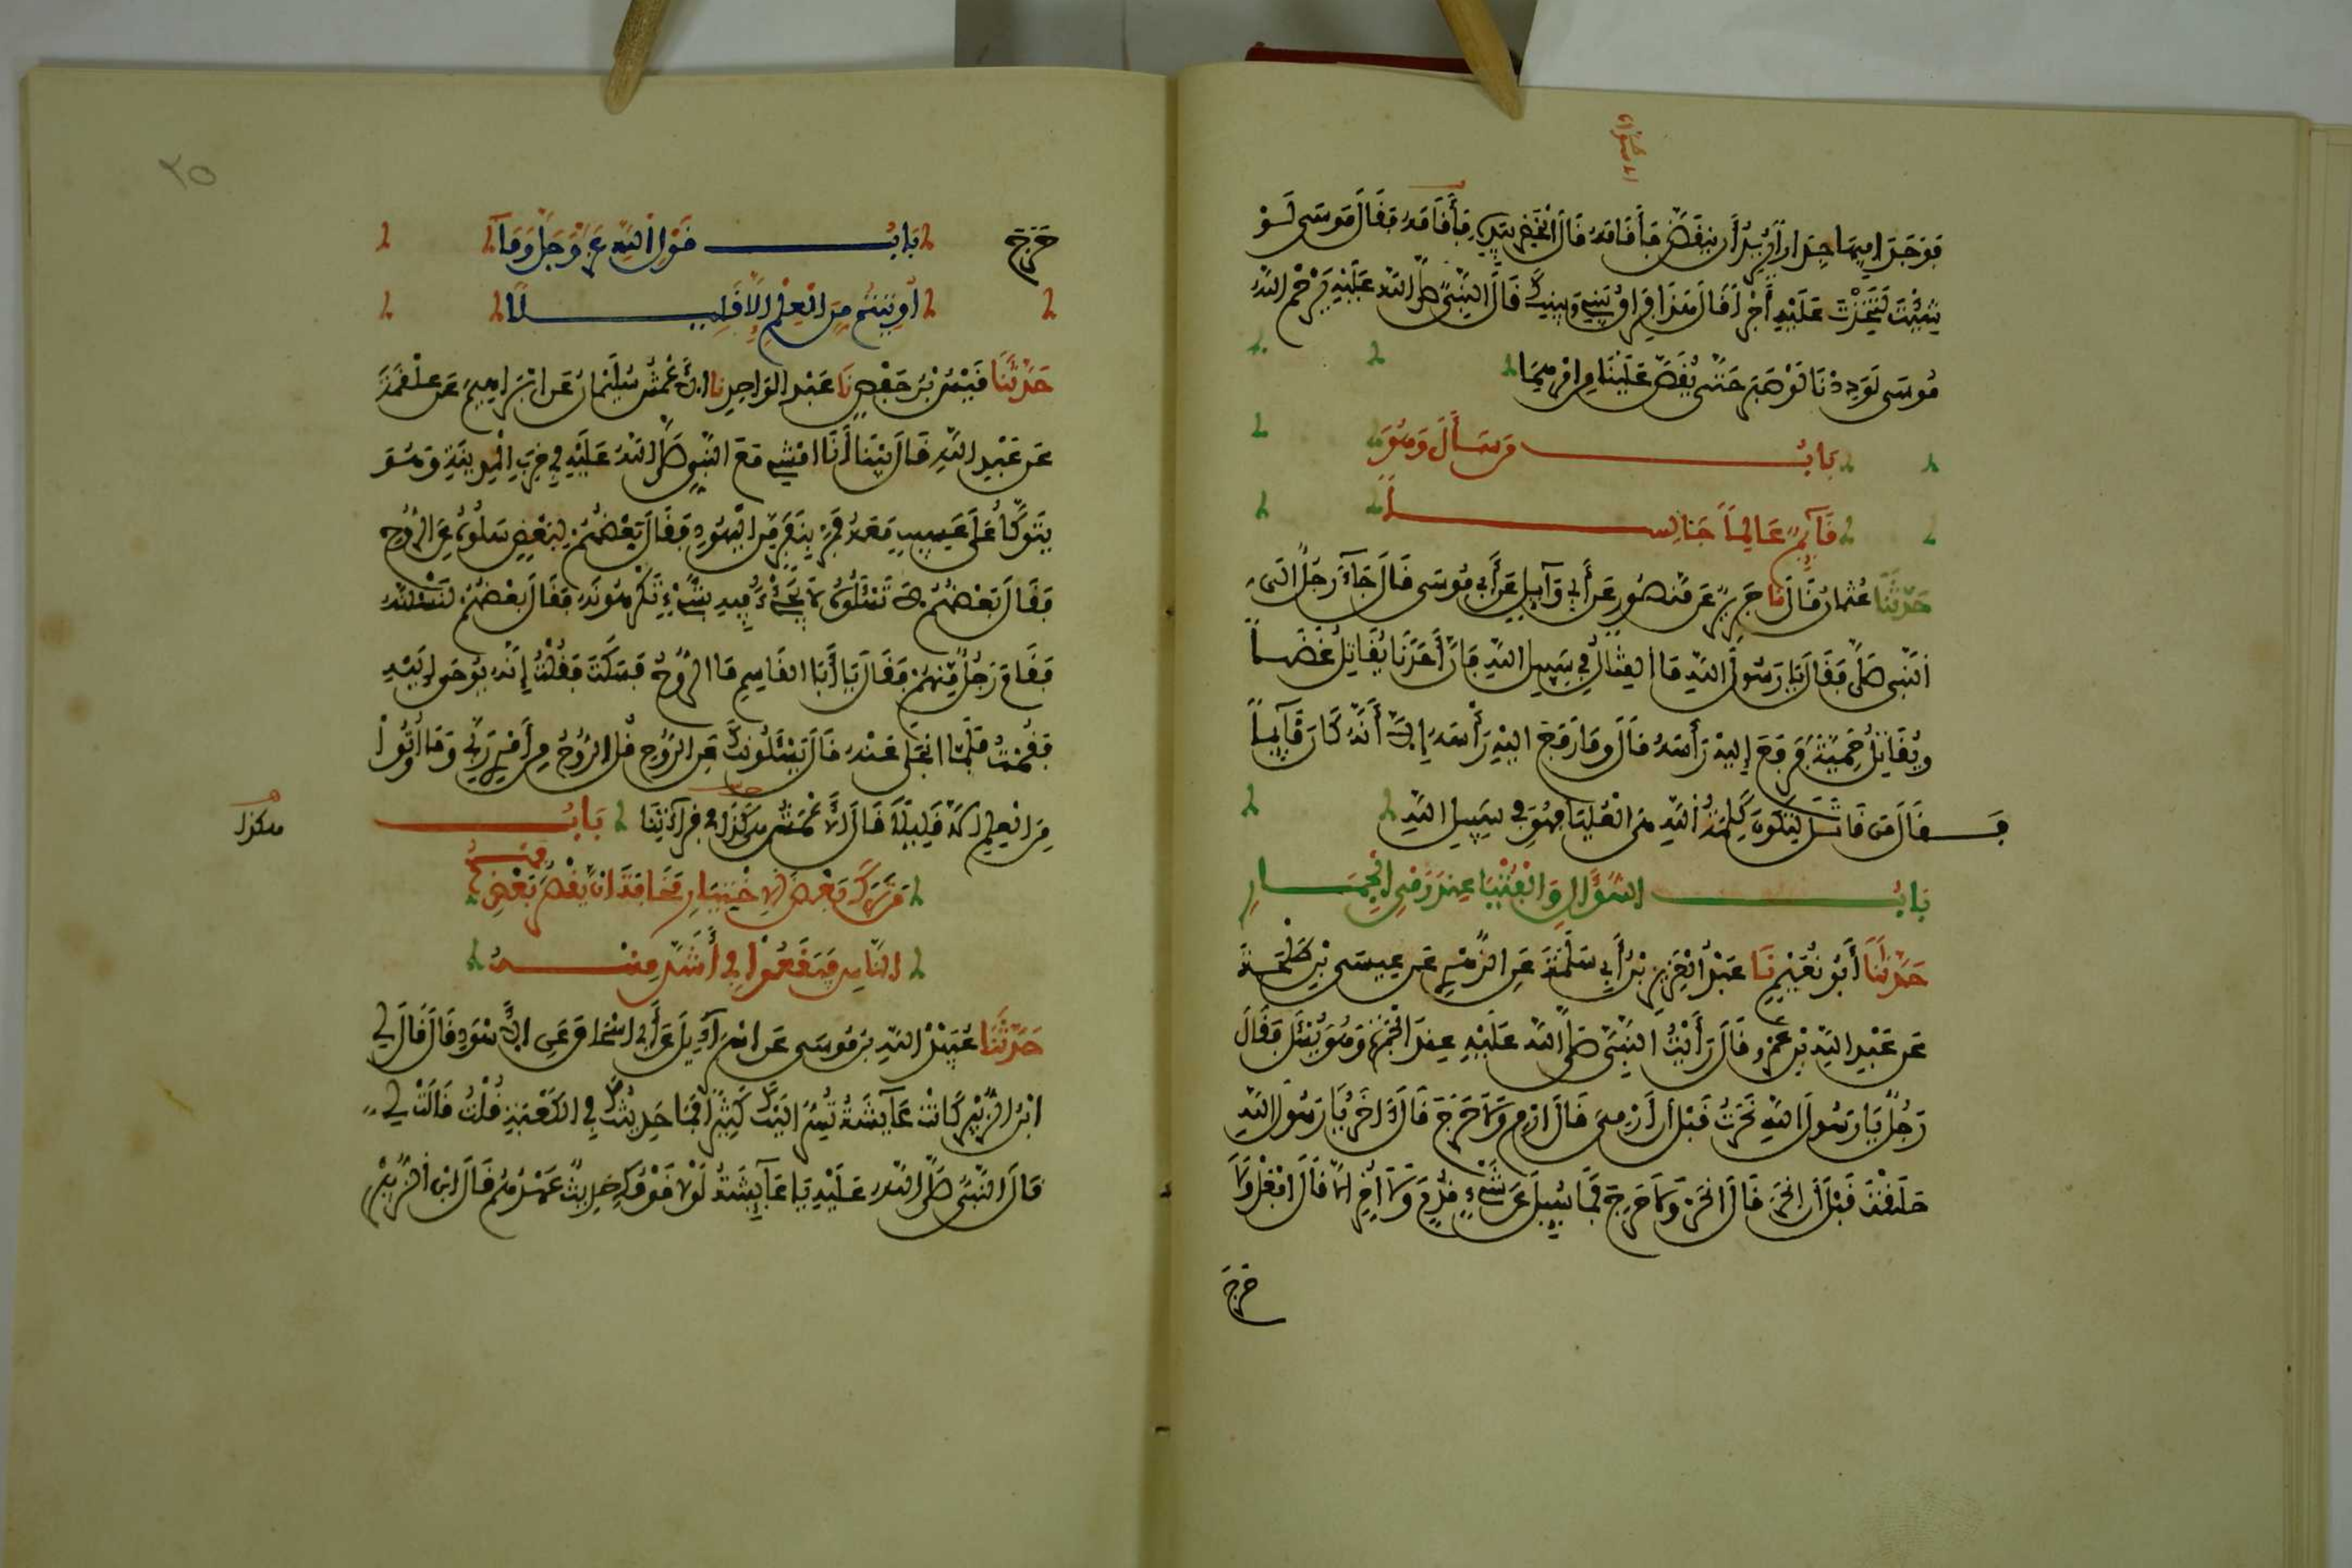 فَوَجَدَا فِيهَا جِدَارًا يُرِيدُ أَن يَنقَضَّ فَأَقَامَهُ قَالَ الْخَضِرُ بِيَدِهِ فَأَقَامَهُ فَقَالَ مُوسَى لَوْ
شِئْتَ لَتَّخَذْتَ عَلَيْهِ أَجْرًا قَالَ هَٰذَا فِرَاقُ بَيْنِي وَبَيْنِكَ قَالَ النَّبِيُّ صَلَّى اللَّهُ عَلَيْهِ يَرْحَمُ اللَّهُ
مُوسَى لَوَدِدْنَا لَوْ صَبَرَ حَتَّى يُقَصَّ عَلَيْنَا مِنْ أَمْرِهِمَا
بَابُ مَن سَأَلَ وَهُوَ
قَآئِمٌ عَالِمًا جَالِسًا
حَدَّثَنَا عُثْمَانُ قَالَ نَا جَرِيرٌ عَن مَّنصُورٍ عَنْ أَبِي وَآئِلٍ عَنْ أَبِي مُوسَى قَالَ جَآءَ رَجُلٌ الَى
النَّبِى صَلَّى فَقَالَ يَا رَسُولَ اللَّهِ مَا الْقِتَالُ فِي سَبِيلِ اللَّهِ فَإِنَّ أَحَدَنَا يُقَاتِلُ غَضَبًا
وَيُقَاتِلُ حَمِيَّةً فَرَفَعَ إِلَيْهِ رَأْسَهُ قَالَ وَمَا رَفَعَ الَيْهِ رَأْسَهُ إِلَّا أَنَّهُ كَانَ قَآئِمًا
فَقَالَ مَن قَاتَلَ لِتَكُونَ كَلِمَةُ اللَّهِ هِيَ الْعُلْيَا فَهُوَ فِي سَبِيلِ اللَّهِ
بَابُ السُّؤَالِ وَالْفُتْيَا عِندَ رَمْيِ الْجِمَارِ
حَدَّثَنَا أَبُو نُعَيْمٍ نَا عَبْدُ الْعَزِيزِ بْنُ أَبِي سَلَمَةَ عَنِ الزُّهْرِيِّ عَن عِيسَى بْنِ طَلْحَةَ
عَن عَبْدِ اللَّهِ بْنِ عَمْرٍو قَالَ رَأَيْتُ النَّبِيَّ صَلَّى اللَّهُ عَلَيْهِ عِندَ الْجَمْرَةِ وَهُوَ يُسْئَلُ فَقَالَ
رَجُلٌ يَا رَسُولَ اللَّهِ نَحَرْتُ قَبْلَ أَن أَرْمِىَ قَالَ ارْمِ وَلَا حَرَجَ قَالَ آخَرُ يَا رَسُولَ اللَّهِ
حَلَقْتُ قَبْلَ أَن انْحَرَ قَالَ انْحَرْ وَلَا حَرَجَ فَمَا سُئِلَ عَن شَيْءٍ قُدِّمَ وَلَا أُخِّرَ الَّا قَالَ افْعَلْ وَلَا
حَرَجَ
٢٥
حَرَجَ بَابُ قَوْلِ اللَّهِ عَزَّ وَجَلَّ وَمَآ
أُوتِيتُم مِّنَ الْعِلْمِ إِلَّا قَلِيلًا
حَدَّثَنَا قَيْسُ بْنُ حَفْصٍ نَا عَبْدُ الْوَاحِدِ نَا الْأَعْمَشُ سُلَيْمَانُ عَن ابْرَاهِيمَ عَن عَلْقَمَةَ
عَن عَبْدِ اللَّهِ قَالَ بَيْنَا أَنَا امْشِي مَعَ النَّبِيِّ صَلَّى اللَّهُ عَلَيْهِ فِي خَرِبِ الْمَدِينَةِ وَهُوَ
يَتَوَكَّأُ عَلَى عَسِيبٍ مَعَهُ فَمَرَّ بِنَفَرٍ مِّنَ الْيَهُودِ فَقَالَ بَعْضُهُمْ لِبَعْضٍ سَلُوهُ عَنِ الرُّوحِ
فَقَالَ بَعْضُهُمْ لَا تَسْئَلُوهُ لَا يَجِيءُ فِيهِ بِشَيْءٍ تَكْرَهُونَهُ فَقَالَ بَعْضُهُمْ لَنَسْئَلَنَّهُ
فَقَامَ رَجُلٌ مِّنْهُمْ فَقَالَ يَا أَبَا الْقَاسِمِ مَا الرُّوحُ فَسَكَتَ فَقُلْتُ إِنَّهُ يُوحَى إِلَيْهِ
فَقُمْتُ فَلَمَّا انْجَلَى عَنْهُ قَالَ يَسْئَلُونَكَ عَنِ الرُّوحِ قُلِ الرُّوحُ مِنْ أَمْرِ رَبِّي وَمَا أُوتُوا
مِنَ الْعِلْمِ إِلَّا قَلِيلًا قَالَ الْأَعْمَشُ هَكَذَا فِي قِرَآءَتِنَا بَابُ
هكذا
مَن تَرَكَ بَعْضَ الِاخْتِيَارِ مَخَافَةَ ان يَقْصُرَ فَهْمُ بَعْضِ
النَّاسِ فَيَقَعُوا فِي أَشَدَّ مِنْهُ
حَدَّثَنَا عُبَيْدُ اللَّهِ بْنُ مُوسَى عَن اسْرَآئِيلَ عَنْ أَبِي اسْحَاقَ عَنِ الْأَسْوَدِ قَالَ قَالَ لِي
ابْنُ الزُّبَيْرِ كَانَتْ عَآئِشَةُ تُسِرُّ الَيْكَ كَثِيرًا فَمَا حَدَّثَتْكَ فِي الْكَعْبَةِ قُلْتُ قَالَتْ لِي
قَالَ النَّبِيُّ صَلَّى اللَّهُ عَلَيْهِ يَا عَآئِشَةُ لَوْلَا قَوْمُكِ حَدِيثٌ عَهْدُهُمْ قَالَ ابْنُ الزُّبَيْرِ